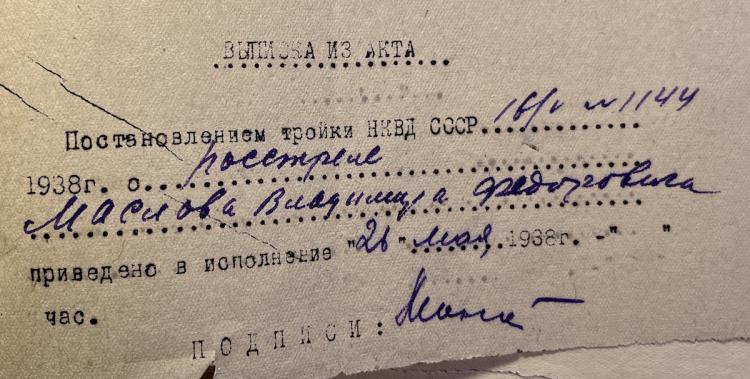 ВЫПИСКА ИЗ АКТА
Постановлением тройки НКВД СССР 16/V № 1144
1938г. о расстреле
Маслова Владимира Федоровича
приведено в исполнение "26" мая 1938г. -" "
час.
ПОДПИСИ: